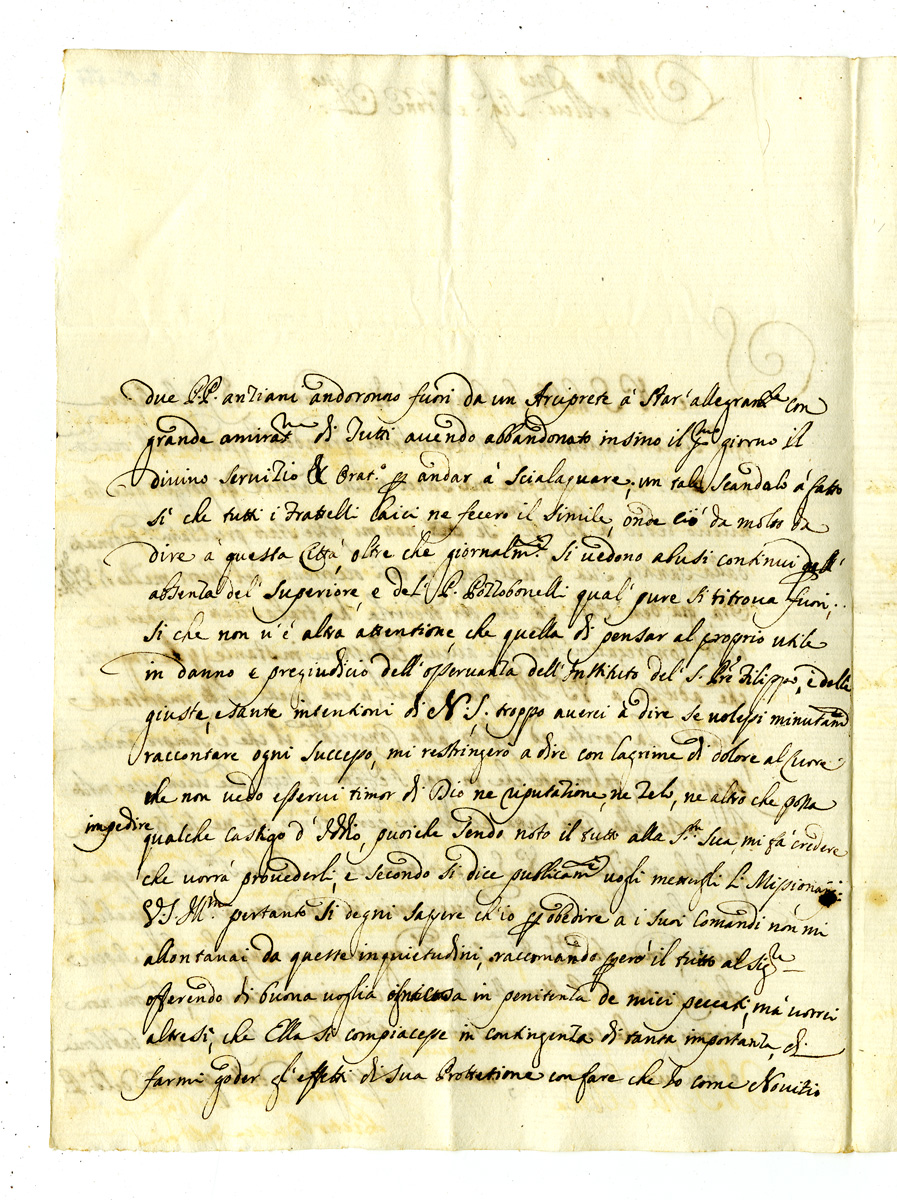 due P.P. antiani andoronno fuori da un Arciprete à star' allegram.te con
grande amirat.ne di Tutti avendo abbandonato insino il giorno il
divino servitio & Orat.o p andar à scialaquare, un tale scandalo à fatto
si che tutti i Frattelli Laici ne fecero il simile, onde ciò da molto da
dire à questa Città, oltre che giornalm.te si vedono abusi continui pell'
absenza del' superiore, e del' P. Pozzobonelli qual' pure si ritrova fuori,
si che non v'è altra attentione, che quella di pensar al proprio utile
in danno e pregiudicio dell'osservanza dell'Instituto del' S. Pre Filippo, e delle
giuste, e sante intentioni di N.S. troppo averei à dire se volessi minutam.te
raccontare ogni successo, mi restringerò a dire con lagrime di dolore al Cuore
che non vedo esservi timor di Dio ne riputatione, ne Zelo, ne altro che possa
impedire qualche castigo d'Iddio, puoiche sendo noto il tutto alla S.tà Sua, mi fà credere
che vorrà provederli, e secondo si dice publicam.te vogli mettergli li Missionari:
V.S. Ill.ma pertanto si degni sapere ch'io p obedire a i suoi Comandi non mi
allontanai da queste inquietudini, raccomando però il tutto al Sig.re
offerendo di buona voglia in penitenza de miei peccati, mà vorrei
altresì, che Ella si compiacesse in contingenza di tanta importanza, di
farmi goder gl'effetti di sua Prottetione con fare che io come Novitio